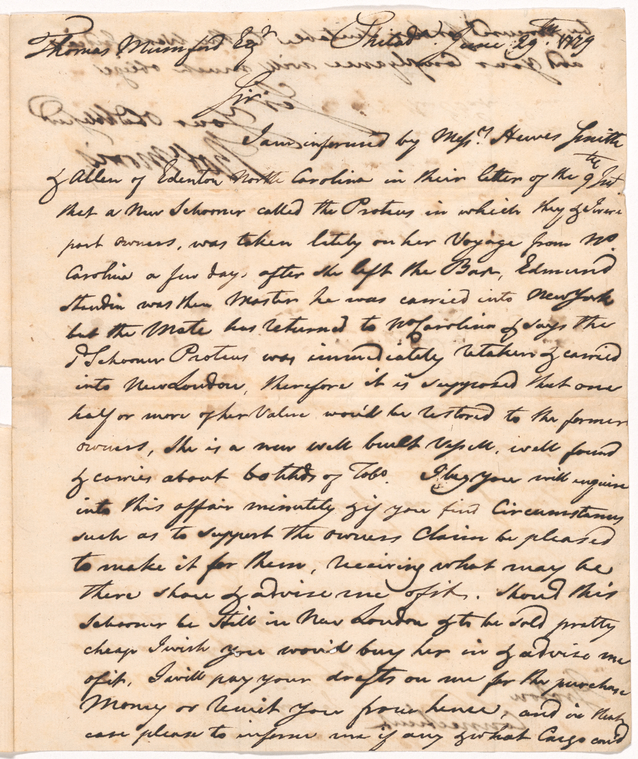 Thomas Mumford Esqr Philada June 29th 1779
Sir
I am informed by Messrs Hewes Smith
& Allen of Edenton North Carolina in their letter of the 9th Inst
that a New Schooner called the Proteus in which they & I were
part owners, was taken lately on her Voyage from No
Carolina a few days after she left the Bar, Edmund
was then Master he was carried into New York
but the Mate has returned to No Carolina & says the
sd Schooner Proteus was immediately retaken & carried
into New London, therefore it is supposed that one
half or more of her Value would be restored to the former
owners, She is a new well built Vessell, well found
& carries about 60 hhds of Tobo. I beg you will enquire
into this affair minutely & if you find Circumstances
such as to support the owners Claim be pleased
to make it for them, receiving what may be
there share & advise me of it. Should this
Schooner be still in New London & to be sold pretty
cheap I wish you would buy her in & advise me
of it, I will pay your drafts on me for the purchase
Money or remit you from hence, and in that
case please to inform me if any & what Cargo could